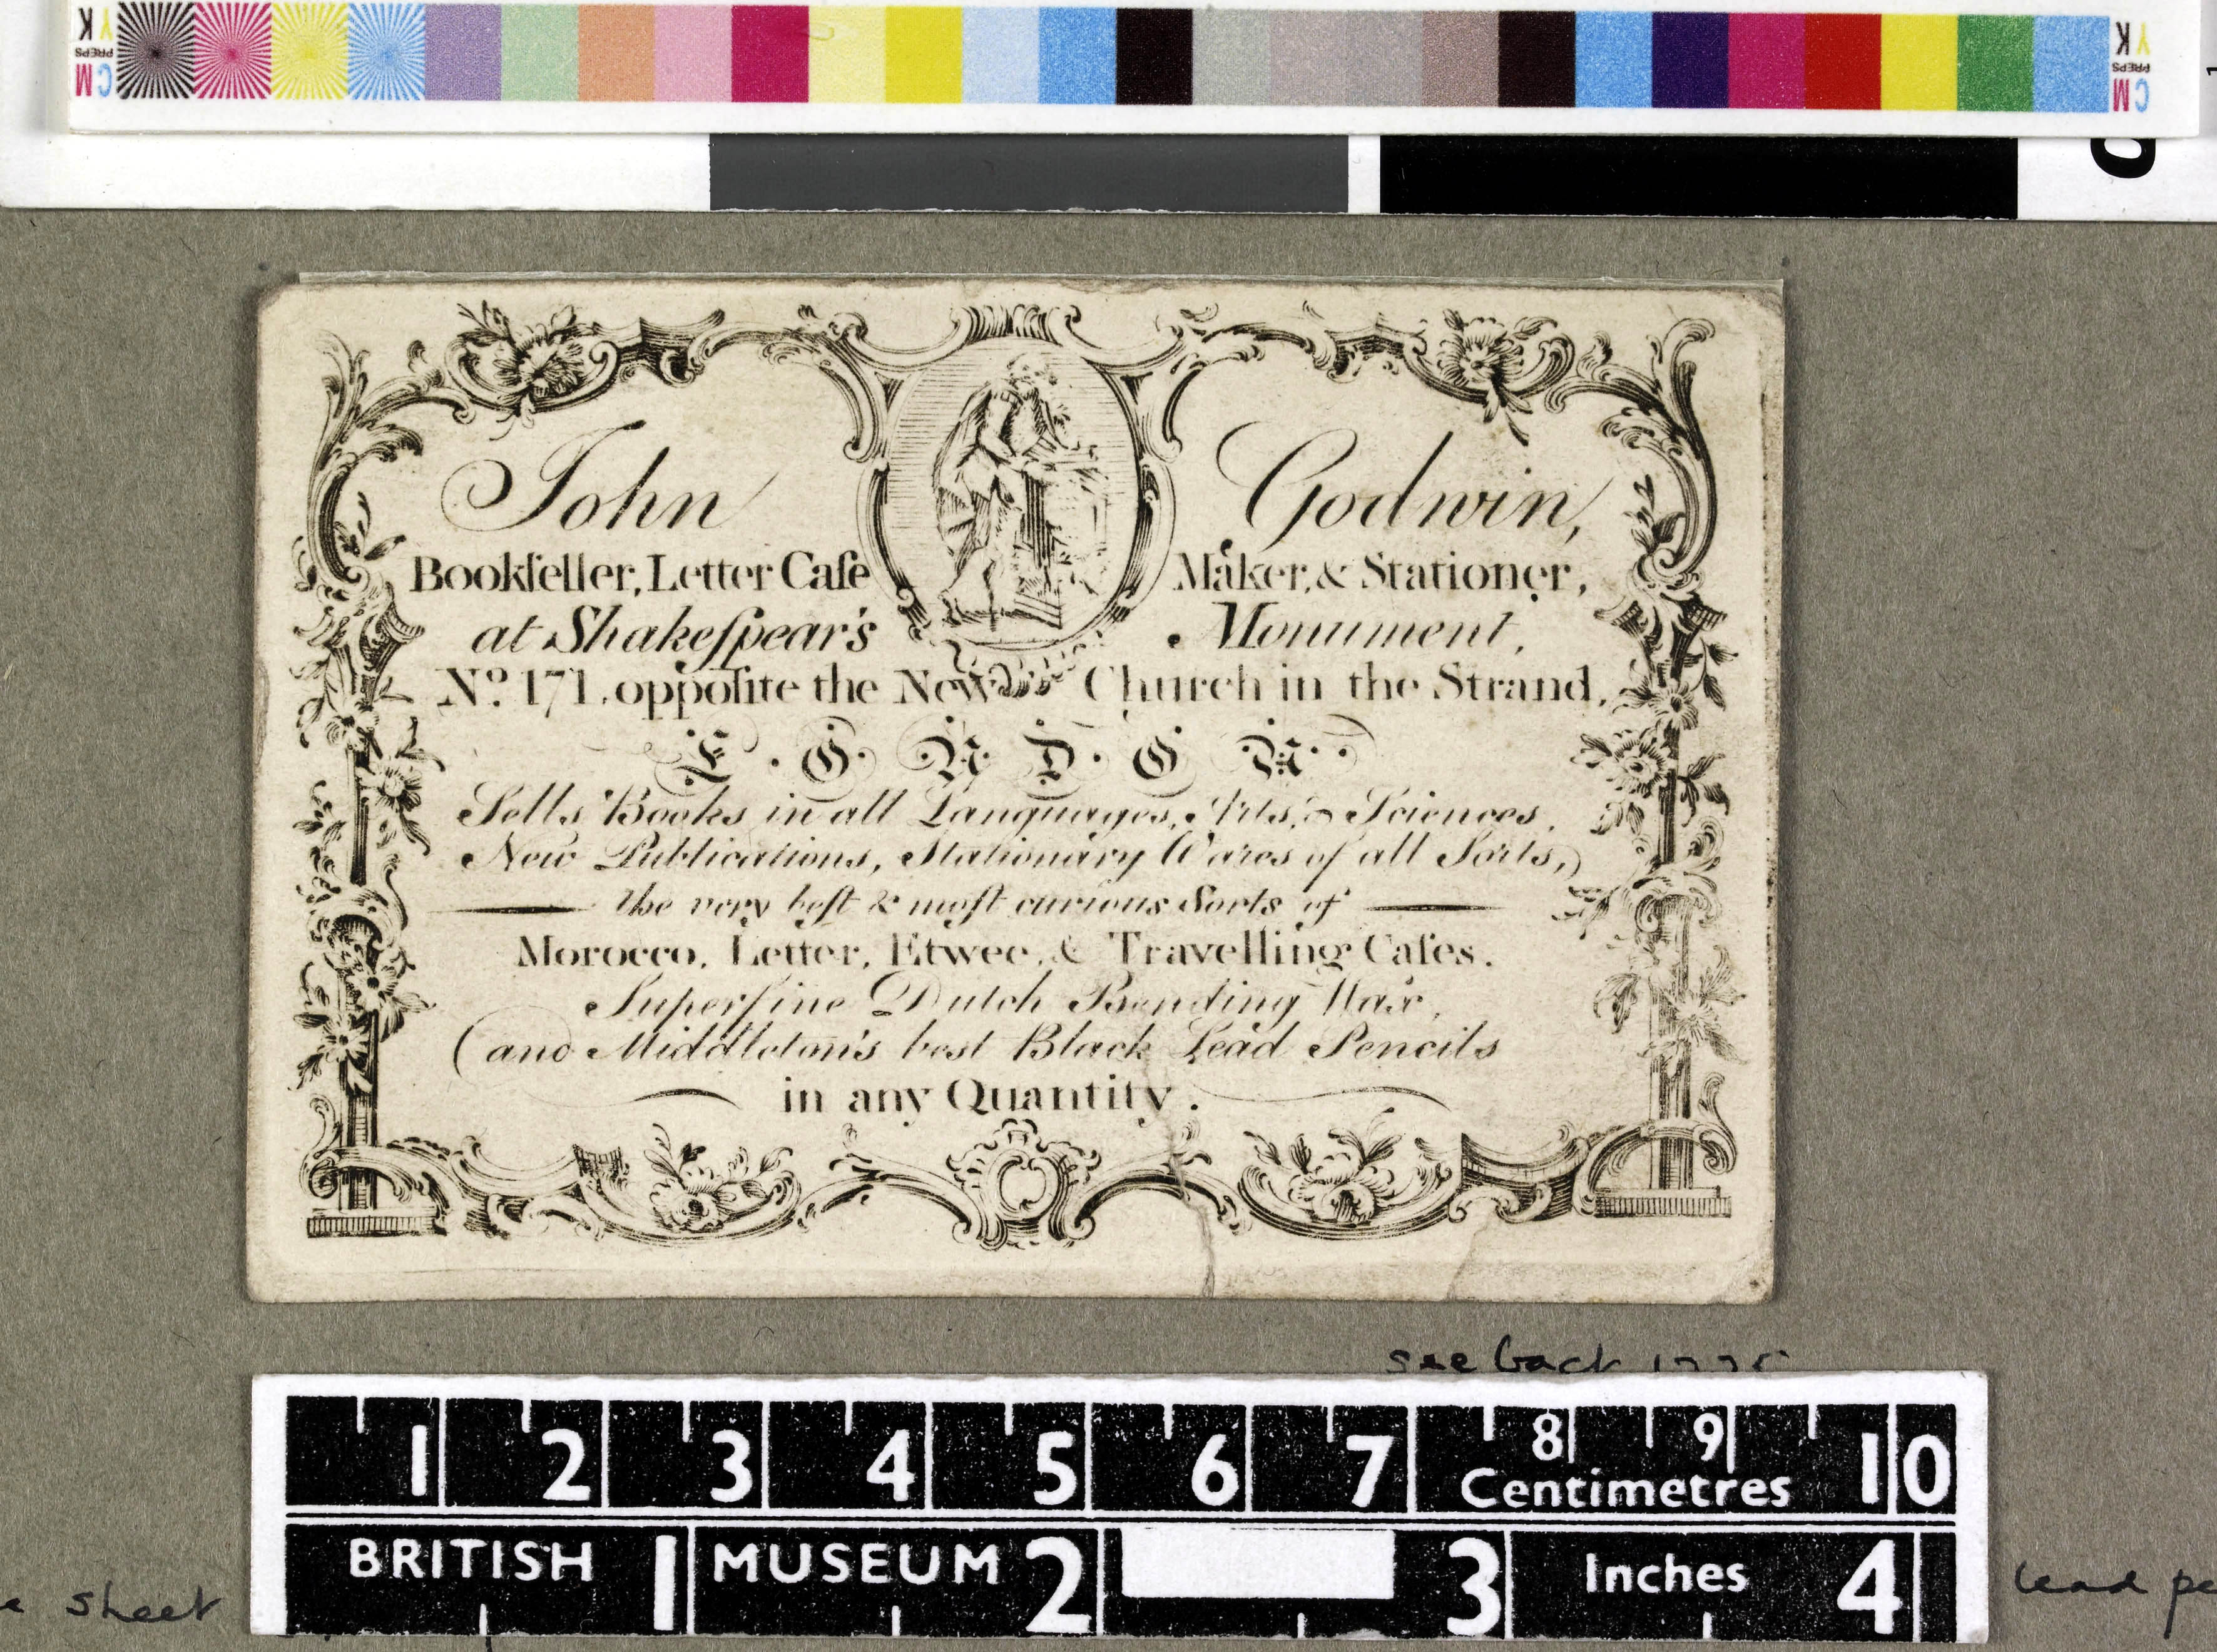 John Godwin,
Bookſeller, Letter Caſe Maker, & Stationer,
at Shakeſpear's Monument,
Nº. 171, oppoſite the New Church in the Strand,
L·O·N·D·O·N··
Sells Books in all Languages, Arts, & Sciences,
New Publications, Stationary Wares of all Sorts,
the very beſt & moſt curious Sorts of
Morocco, Letter, Etwee, & Travelling Caſes.
Superfine Dutch Wax,
and Middleton's best Black Lead Pencils
in any Quantity.
see back 1775
1 2 3 4 5 6 7 8 9 10
Centimetres
BRITISH 1 MUSEUM 2 3 Inches 4
sheet
lead